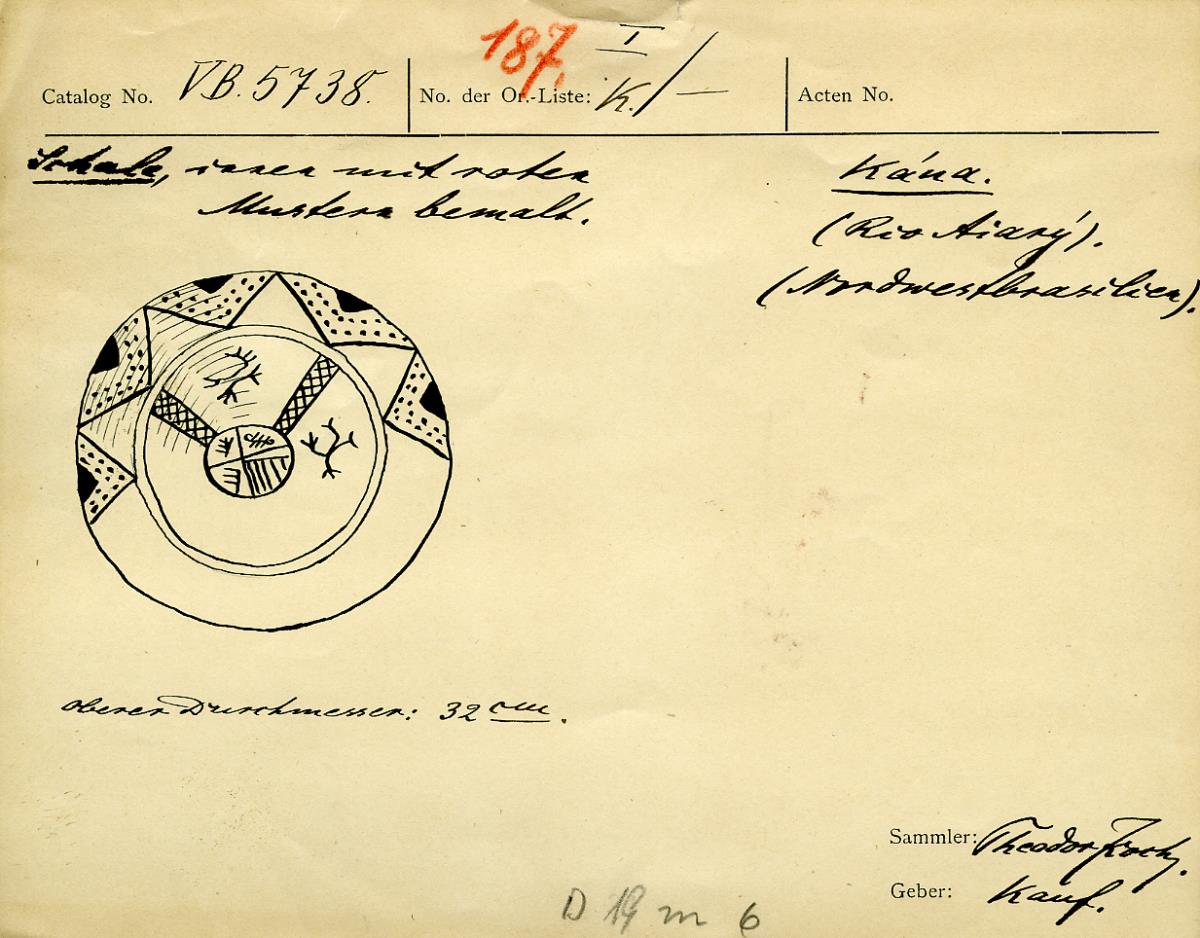 187. I
Catalog No. VB. 5738. No. der Or.-Liste: K./— Acten No.
Schale, innen mit roten
Mustern bemalt.
Káua.
(Rio Aiarý).
(Nordwestbrasilien).
oberer Durchmesser: 32 cm.
Sammler: Theodor Koch.
Geber: Kauf.
D 19 m 6